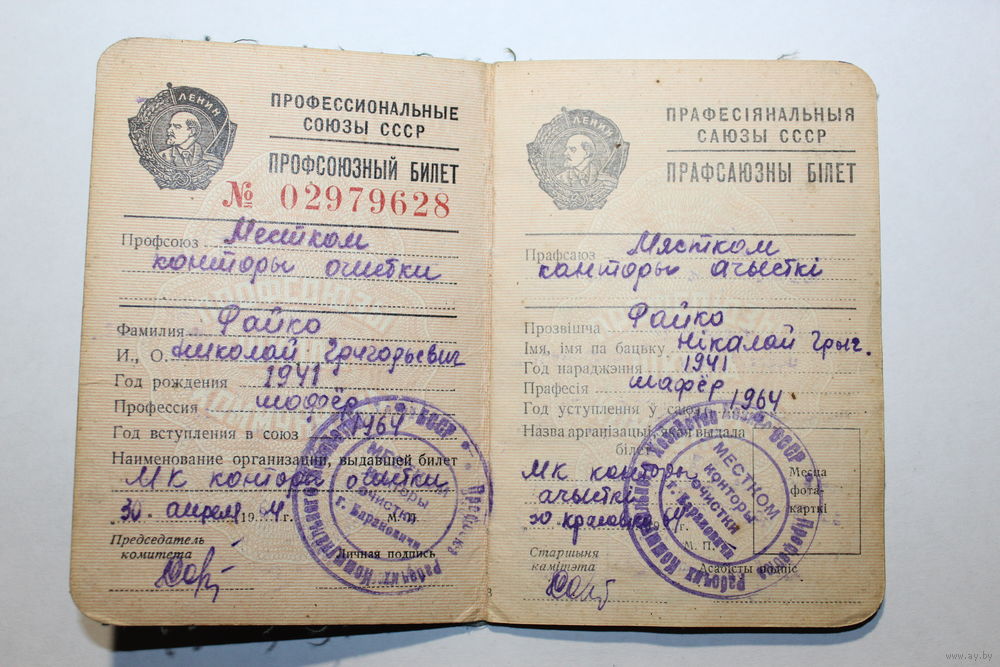 ЛЕНИН
ПРОФЕССИОНАЛЬНЫЕ
СОЮЗЫ СССР
ПРОФСОЮЗНЫЙ БИЛЕТ
№ 02979628
Профсоюз Местком
конторы очистки
Фамилия Файко
И., О. Николай Григорьевич
Год рождения 1941
Профессия шофёр
Год вступления в союз 1964
Наименование организации, выдавшей билет
МК конторы очистки
30 апреля 1964 г. М. П.
Председатель
комитета
Личная подпись
МЕСТКОМ
конторы
очистки
г. Барановичи
ЛЕНИН
ПРАФЕСІЯНАЛЬНЫЯ
САЮЗЫ СССР
ПРАФСАЮЗНЫ БІЛЕТ
Прафсаюз Мястком
канторы ачысткі
Прозвішча Файко
Імя, імя па бацьку Нікалай Грыг.
Год нараджэння 1941
Прафесія шафёр
Год уступлення ў саюз 1964
Назва арганізацыі, якая выдала
білет
МК канторы
ачысткі
30 красавіка 64 г.
М. П.
Месца
фота-
карткі
Старшыня
камітэта
Асабісты подпіс
МЕСТКОМ
конторы
очистки
г. Барановичи
www.ay.by